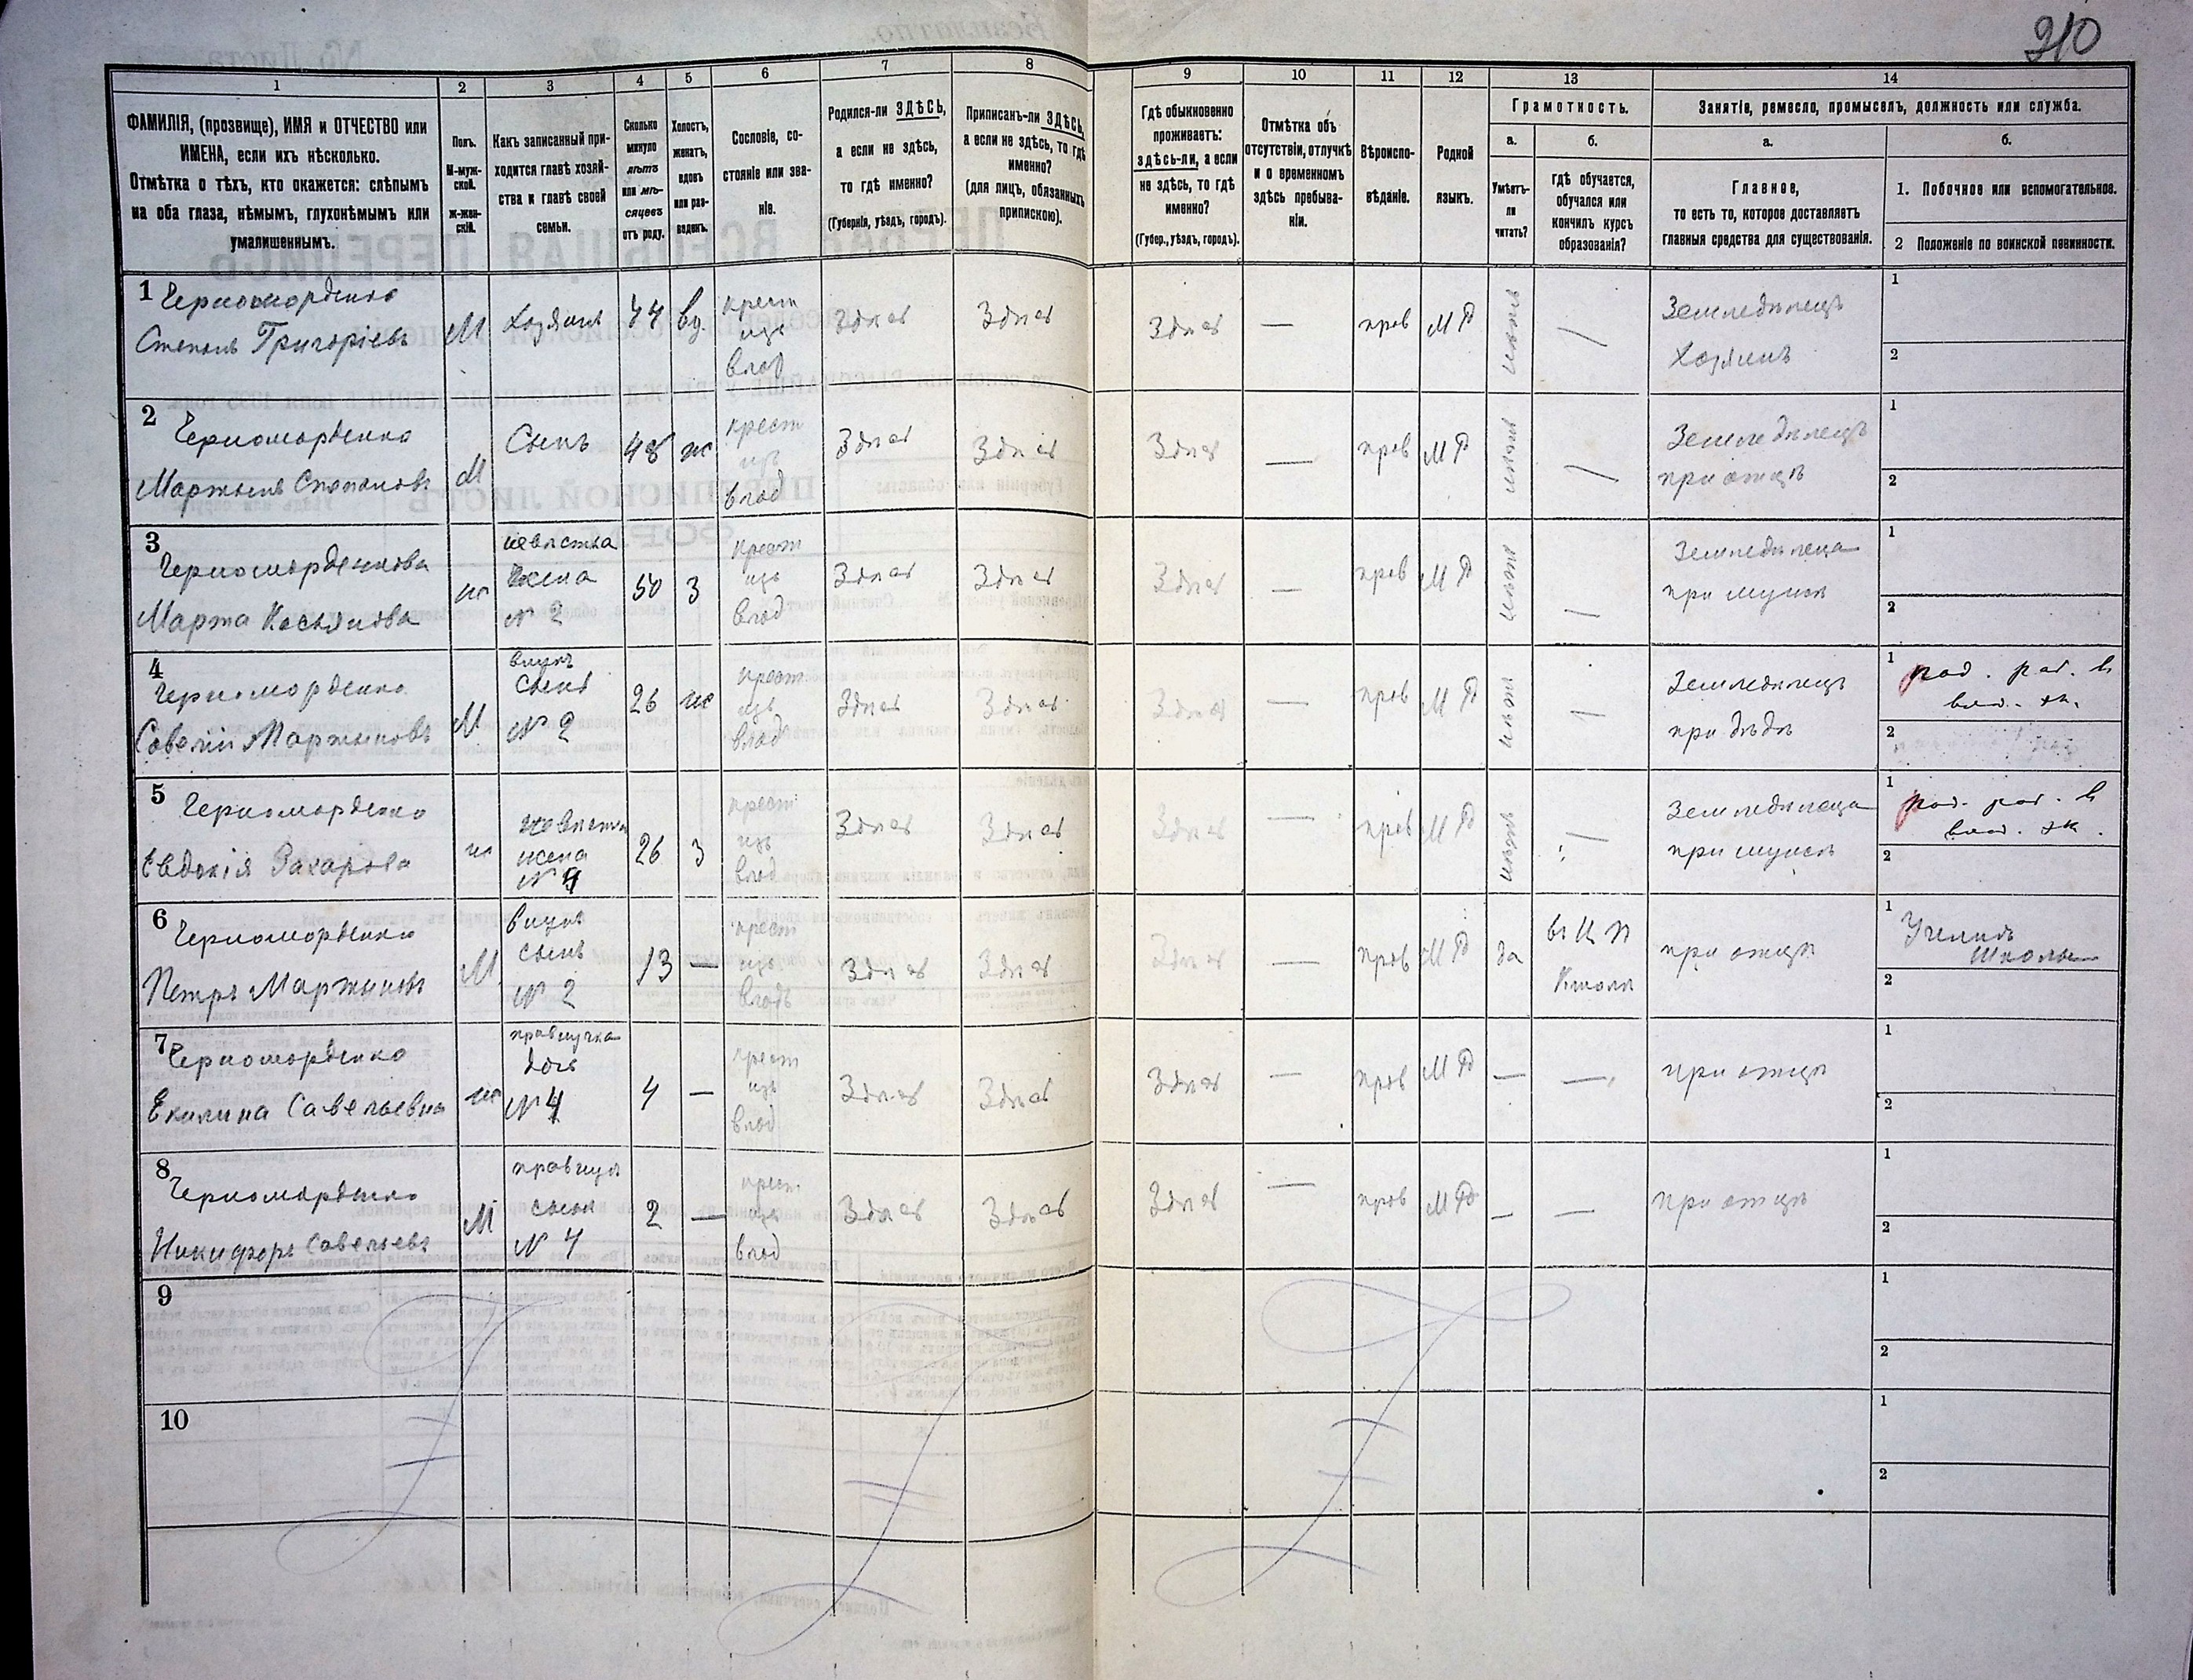 210
1
2
3
4
5
6
7
8
9
10
11
12
13
14
ФАМИЛІЯ, (прозвище), ИМЯ и ОТЧЕСТВО или
ИМЕНА, если ихъ нѣсколько.
Отмѣтка о тѣхъ, кто окажется: слѣпымъ
на оба глаза, нѣмымъ, глухонѣмымъ или
умалишеннымъ.
Полъ.
М-муж-
ской.
ж-жен-
скій.
Какъ записанный при-
ходится главѣ хозяй-
ства и главѣ своей
семьи.
Сколько
минуло
лѣтъ
или мѣ-
сяцевъ
отъ роду.
Холостъ,
женатъ,
вдовъ
или раз-
веденъ.
Сословіе, со-
стояніе или зва-
ніе.
Родился-ли ЗДѢСЬ,
а если не здѣсь,
то гдѣ именно?
(Губернія, уѣздъ, городъ).
Приписанъ-ли ЗДѢСЬ,
а если не здѣсь, то гдѣ
именно?
(для лицъ, обязанныхъ
припискою).
Гдѣ обыкновенно
проживаетъ:
здѣсь-ли, а если
не здѣсь, то гдѣ
именно?
(Губер., уѣздъ, городъ).
Отмѣтка объ
отсутствіи, отлучкѣ
и о временномъ
здѣсь пребыва-
ніи.
Вѣроиспо-
вѣданіе.
Родной
языкъ.
Грамотность.
а.
Умѣетъ-
ли
читать?
б.
гдѣ обучается,
обучался или
кончилъ курсъ
образованія?
Занятіе, ремесло, промыселъ, должность или служба.
а.
Главное,
то есть то, которое доставляетъ
главныя средства для существованія.
б.
1. Побочное или вспомогательное.
2 Положеніе по воинской повинности.
1 Черноморденко
Степанъ Григоріевъ
М
Хозяинъ
вд.
крест
изъ
влад
Здѣсь
Здѣсь
Здѣсь
—
прав
МР
Земледѣлецъ
Хозяинъ
1
2
2 Черноморденко
Мартынъ Степановъ
М
Сынъ
48
ж
крест
изъ
влад
Здѣсь
Здѣсь
Здѣсь
—
прав
МР
Земледѣлецъ
при отцѣ
1
2
3 Черноморденкова
Марта Касьянова
ж
невѣстка
жена
№ 2
50
З
крест
изъ
влад
Здѣсь
Здѣсь
Здѣсь
—
прав
МР
Земледѣлеца
при мужѣ
1
2
4 Черноморденко
Савелій Мартыновъ
М
внукъ
сынъ
№ 2
26
ж
крест
изъ
влад
Здѣсь
Здѣсь
Здѣсь
—
прав
МР
Земледѣлецъ
при дѣдѣ
1
2
5 Черноморденко
Евдокія Захарова
ж
невѣстка
жена
№ 4
26
З
крест
изъ
влад
Здѣсь
Здѣсь
Здѣсь
—
прав
МР
Земледѣлеца
при мужѣ
1
2
6 Черноморденко
Петръ Мартыновъ
М
внукъ
сынъ
№ 2
13
—
крест
изъ
владъ
Здѣсь
Здѣсь
Здѣсь
—
прав
МР
да
въ Ц П
Школѣ
при отцѣ
1 Ученикъ
Школы
2
7 Черноморденко
Екилина Савельевна
ж
правнучка
дочь
№ 4
4
—
крест
изъ
влад
Здѣсь
Здѣсь
Здѣсь
—
прав
МР
—
—
при отцѣ
1
2
8 Черноморденко
Никифоръ Савельевъ
М
правнукъ
сынъ
№ 4
2
—
крест
изъ
влад
Здѣсь
Здѣсь
Здѣсь
—
прав
МР
—
—
при отцѣ
1
2
9
1
2
10
1
2